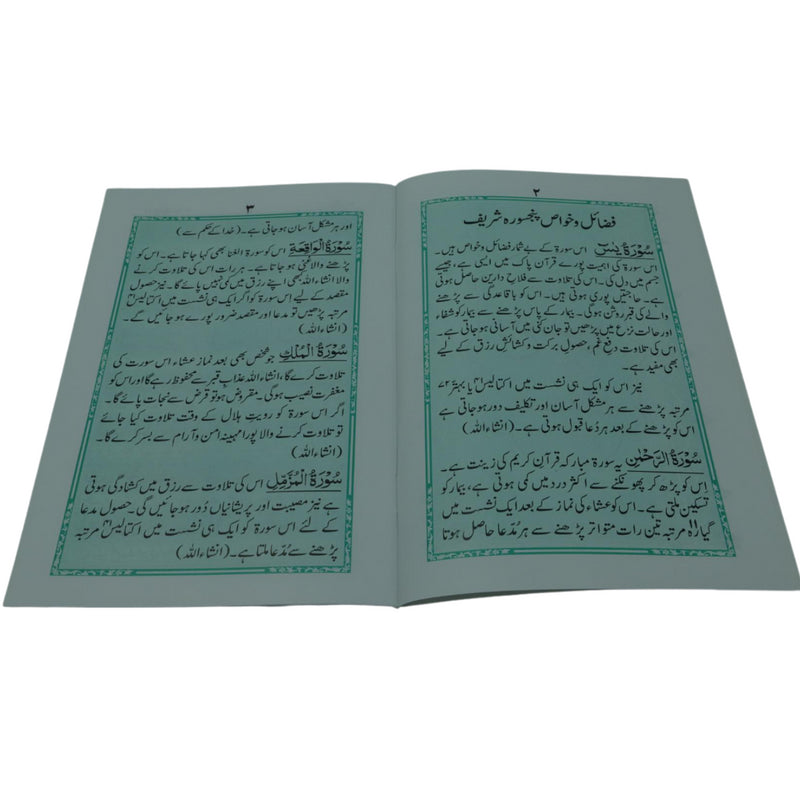 ۲
فضائل و خواص پنجسورہ شریف
سُوْرَۃُ یٰسٓ اس سورۃ کے بے شمار فضائل وخواص ہیں۔
اس سورۃ کی اہمیت پورے قرآن پاک میں ایسی ہے، جیسے
جسم میں دل کی۔ اس کی تلاوت سے فلاح دارین حاصل ہوتی
ہے۔ حاجتیں پوری ہوتی ہیں۔ اس کو باقاعدگی سے پڑھنے
والے کی قبر روشن ہوگی۔ بیمار کے پاس پڑھنے سے بیمار کو شفاء
اور حالت نزع میں پڑھیں تو جان کنی میں آسانی ہوجاتی ہے۔
اس کی تلاوت دفعِ غم، حصولِ برکت و کشائشِ رزق کے لیے
بھی مفید ہے۔
نیز اس کو ایک ہی نشست میں اکتالیس۴۱ یا بہتر ۷۲
مرتبہ پڑھنے سے ہر مشکل آسان اور تکلیف دور ہوجاتی ہے
اس کو پڑھنے کے بعد ہر دُعا قبول ہوتی ہے۔ (انشاءاللہ)
سُوْرَۃُ الرَّحْمٰنِ یہ سورۃ مبارکہ قرآنِ کریم کی زینت ہے۔
اِس کو پڑھ کر پھونکنے سے اکثر درد میں کمی ہوتی ہے، بیمار کو
تسکین ملتی ہے۔ اس کو عشاء کی نماز کے بعد ایک نشست میں
گیارہ۱۱ مرتبہ تین رات متواتر پڑھنے سے ہر مُدّعا حاصل ہوتا
۳
اور ہر مشکل آسان ہوجاتی ہے۔ (خدا کے حکم سے)
سُوْرَۃُ الْوَاقِعَۃِ اس کو سورۃ الغنا بھی کہا جاتا ہے۔ اس کو
پڑھنے والا غنی ہو جاتا ہے۔ ہر رات اس کی تلاوت کرنے
والا انشاءاللہ کبھی اپنے رزق میں کمی نہیں پائے گا۔ نیز حصول
مقصد کے لیے اس سورۃ کو اگر ایک ہی نشست میں اکتالیس۴۱
مرتبہ پڑھیں تو مدعا اور مقصد ضرور پورے ہو جائیں گے۔
(انشاءاللہ)
سُوْرَۃُ الْمُلْكِ جو شخص بھی بعد نماز عشاء اس سورت کی
تلاوت کرے گا، انشاءاللہ عذاب قبر سے محفوظ رہے گا اور اس کو
مغفرت نصیب ہوگی۔ مقروض ہو تو قرض سے نجات پائے گا۔
اگر اس سورۃ کو رویتِ ہلال کے وقت تلاوت کیا جائے
تو تلاوت کرنے والا پورا مہینہ امن و آرام سے بسر کرے گا۔
(انشاءاللہ)
سُوْرَۃُ الْمُزَّمِّلِ اس کی تلاوت سے رزق میں کشادگی ہوتی
ہے نیز مصیبت اور پریشانیاں دُور ہو جائیں گی۔ حصول مدعا
کے لئے اس سورۃ کو ایک ہی نشست میں اکتالیس۴۱ مرتبہ
پڑھنے سے مُدّعا ملتا ہے۔ (انشاءاللہ)